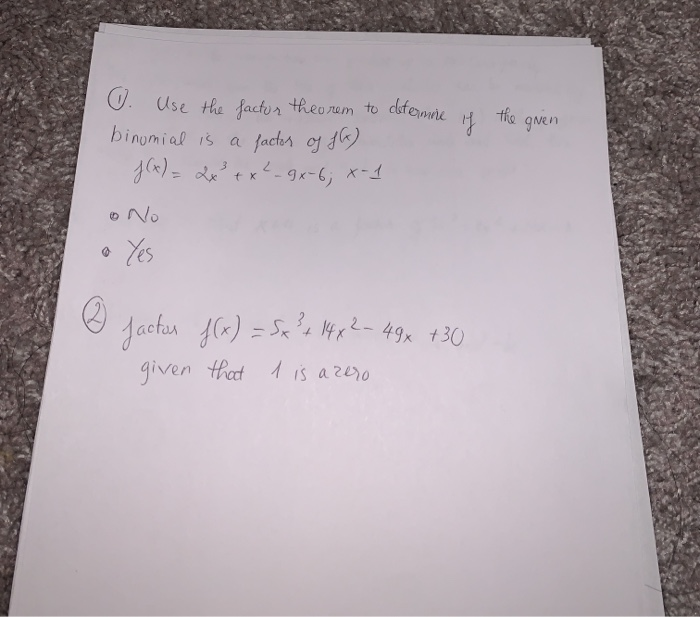 ①. Use the factor theorem to determine if the given
binomial is a factor of f(x)
f(x) = 2x³ + x² - 9x - 6; x - 1
No
Yes
② factor f(x) = 5x³ + 14x² - 49x + 30
given that 1 is a zero